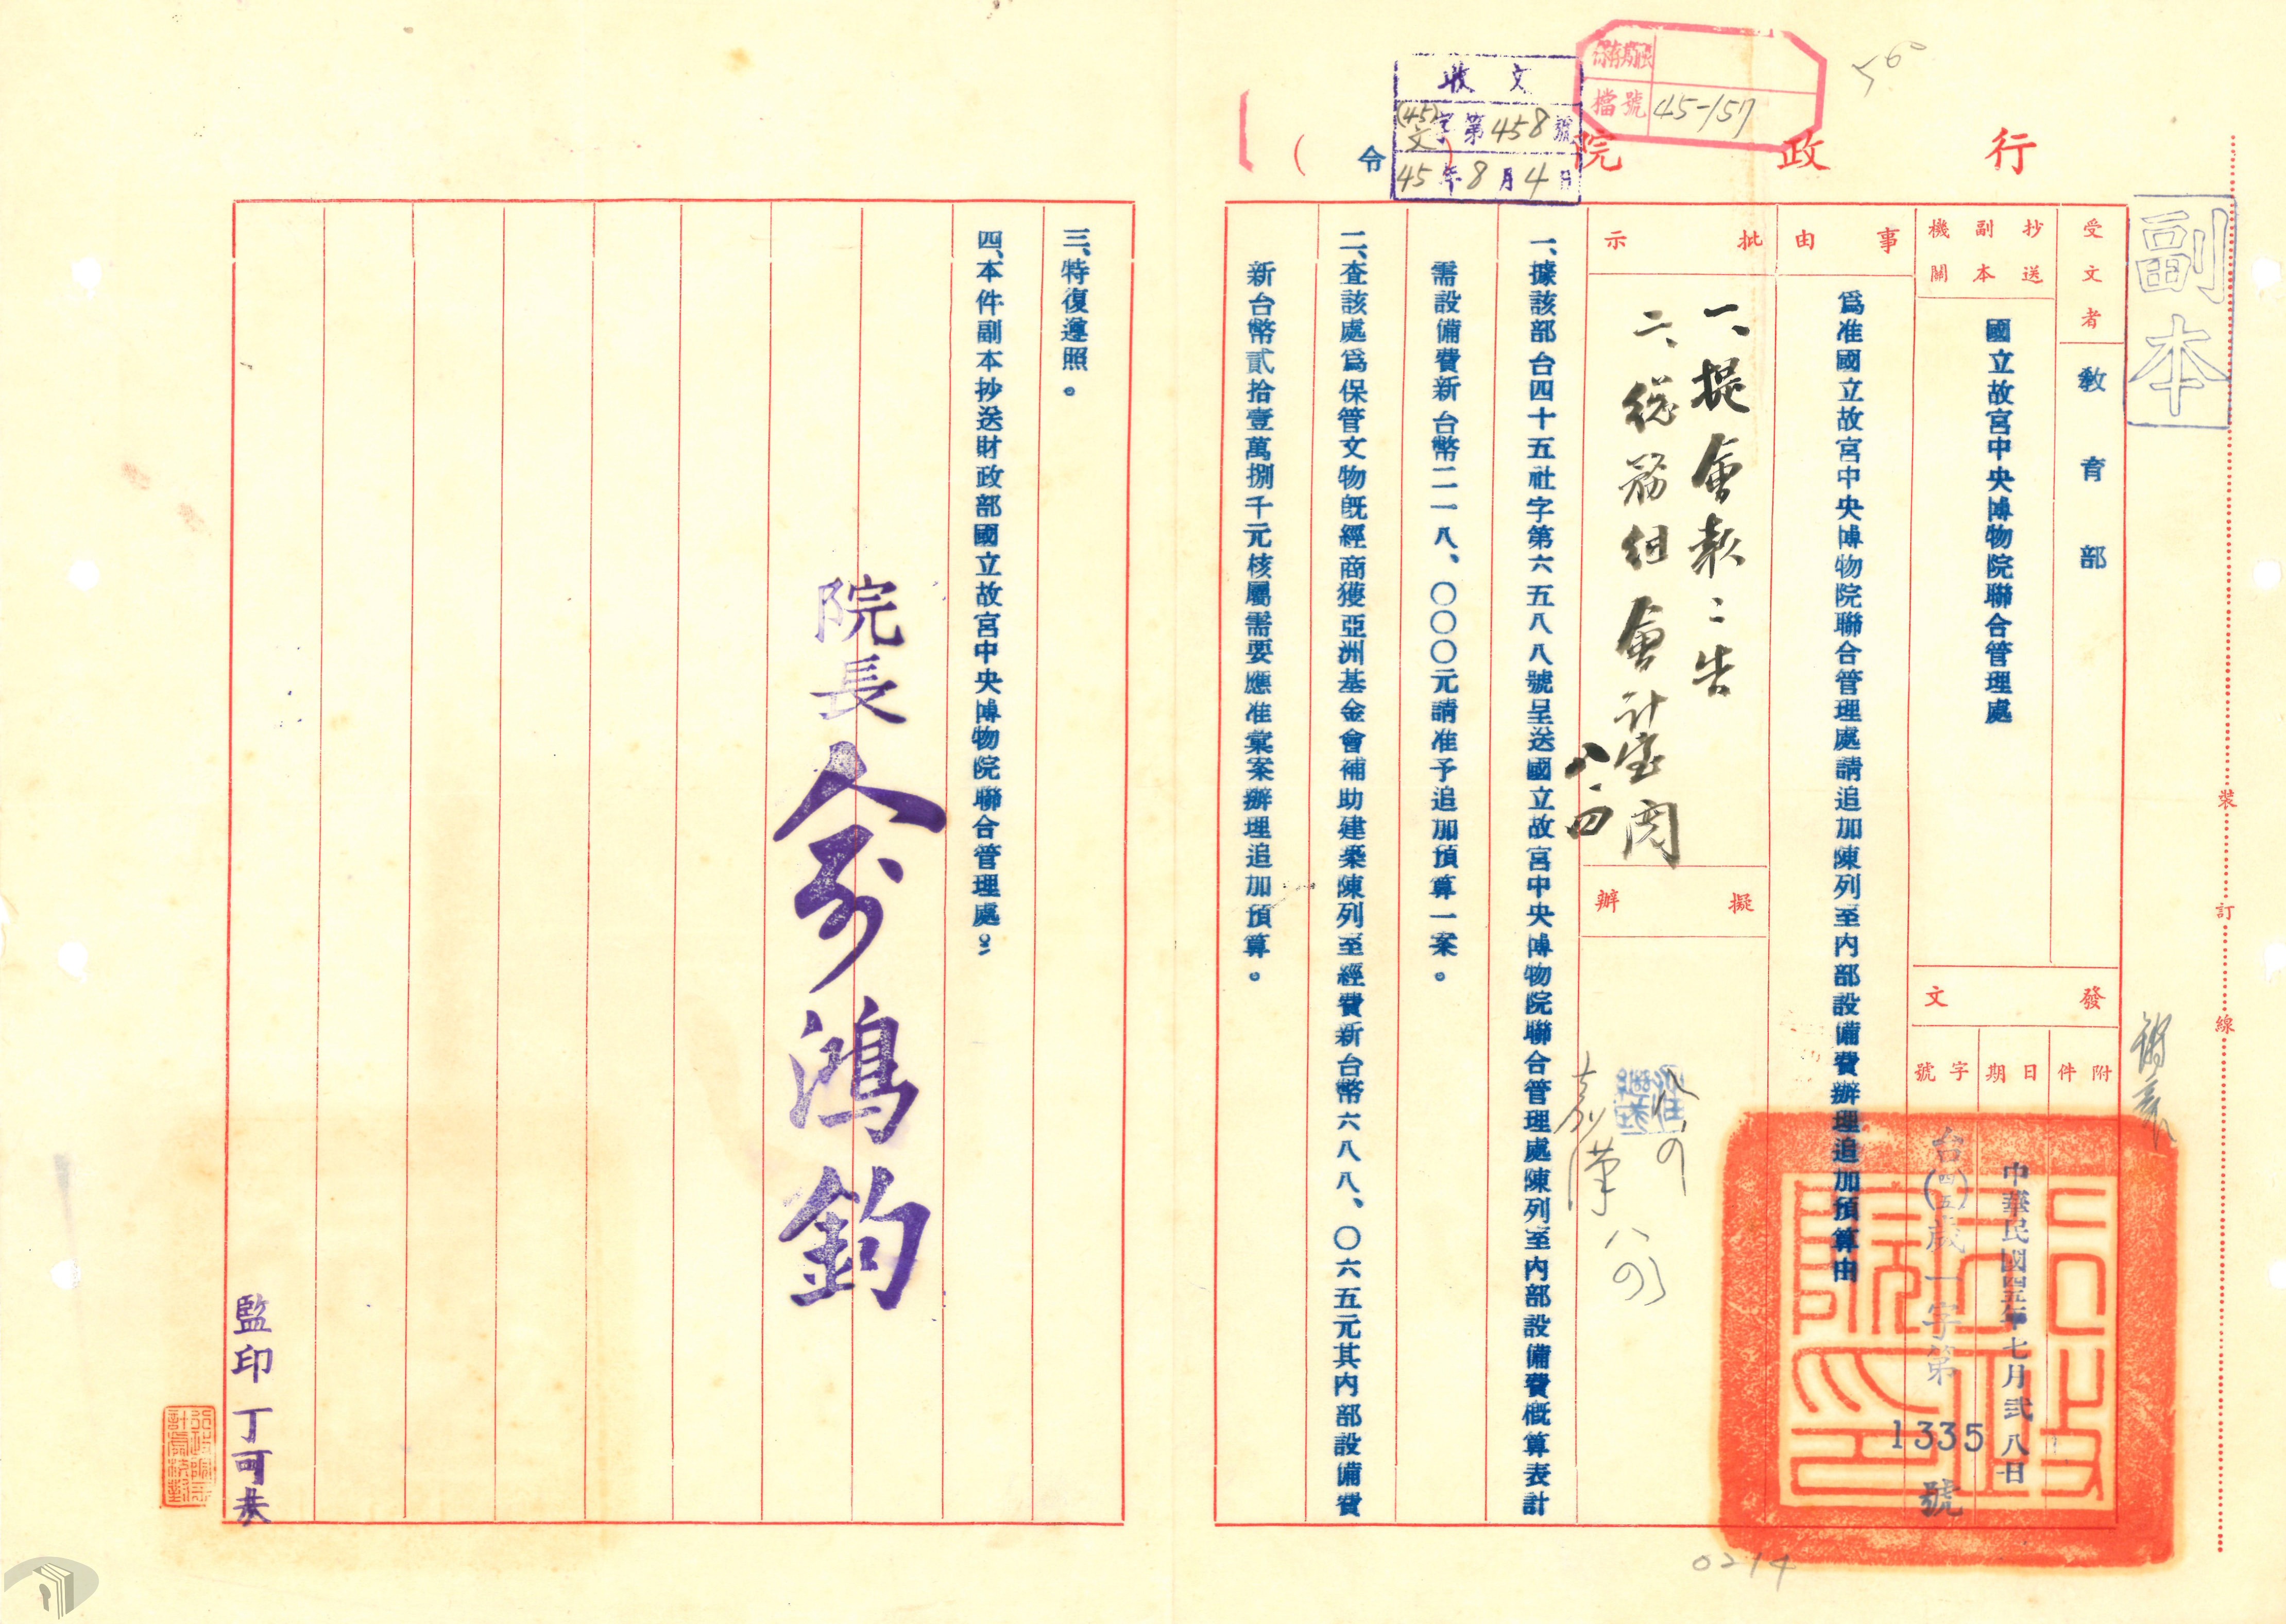 副本
行政院
(令)
收文
(45)文字第458號
45年8月4日
檔號 45-157
受文者
教育部
抄送副本機關
國立故宮中央博物院聯合管理處
發文
附件
日期
中華民國四五年七月弐八日
字號
台(四五)歲一字第1335號
事由
爲准國立故宮中央博物院聯合管理處請追加陳列至內部設備費辦理追加預算由
批示
一、提會報報告
二、總務組會計室閱
八、四
擬辦
一、據該部台四十五社字第六五八八號呈送國立故宮中央博物院聯合管理處陳列至內部設備費概算表計
需設備費新台幣二一八、〇〇〇元請准予追加預算一案。
二、查該處爲保管文物旣經商獲亞洲基金會補助建築陳列至經費新台幣六八八、〇六五元其內部設備費
新台幣貳拾壹萬捌千元核屬需要應准棄案辦理追加預算。
三、特復遵照。
四、本件副本抄送財政部國立故宮中央博物院聯合管理處。
院長俞鴻鈞
監印丁可恭
裝訂線
0214